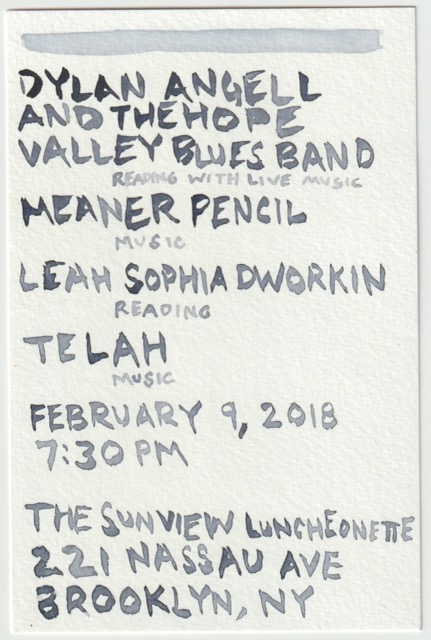 DYLAN ANGELL
AND THE HOPE
VALLEY BLUES BAND
READING WITH LIVE MUSIC
MEANER PENCIL
MUSIC
LEAH SOPHIA DWORKIN
READING
TELAH
MUSIC
FEBRUARY 9, 2018
7:30 PM
THE SUNVIEW LUNCHEONETTE
221 NASSAU AVE
BROOKLYN, NY